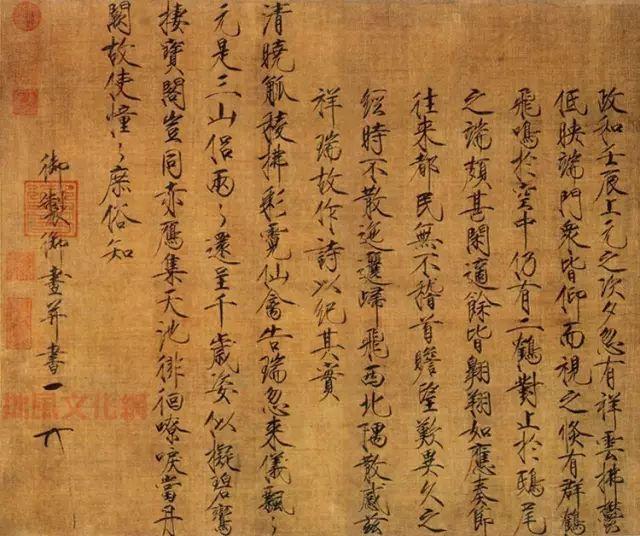 政和壬辰上元之次夕忽有祥雲拂鬱
低映端門衆皆仰而視之倏有群鶴
飛鳴於空中仍有二鶴對止於鴟尾
之端頗甚閑適餘皆翱翔如應奏節
往来都民無不稽首瞻望歎異久之
經時不散迤邐歸飛西北隅散感兹
祥瑞故作詩以紀其實
清曉觚稜拂彩霓仙禽告瑞忽来儀飄〻
元是三山侶兩〻還呈千歲姿似擬碧鸞
棲寳閣豈同赤鴈集天池徘徊嘹唳當丹
闕故使憧〻庶俗知
御製御畫并書
天下一人